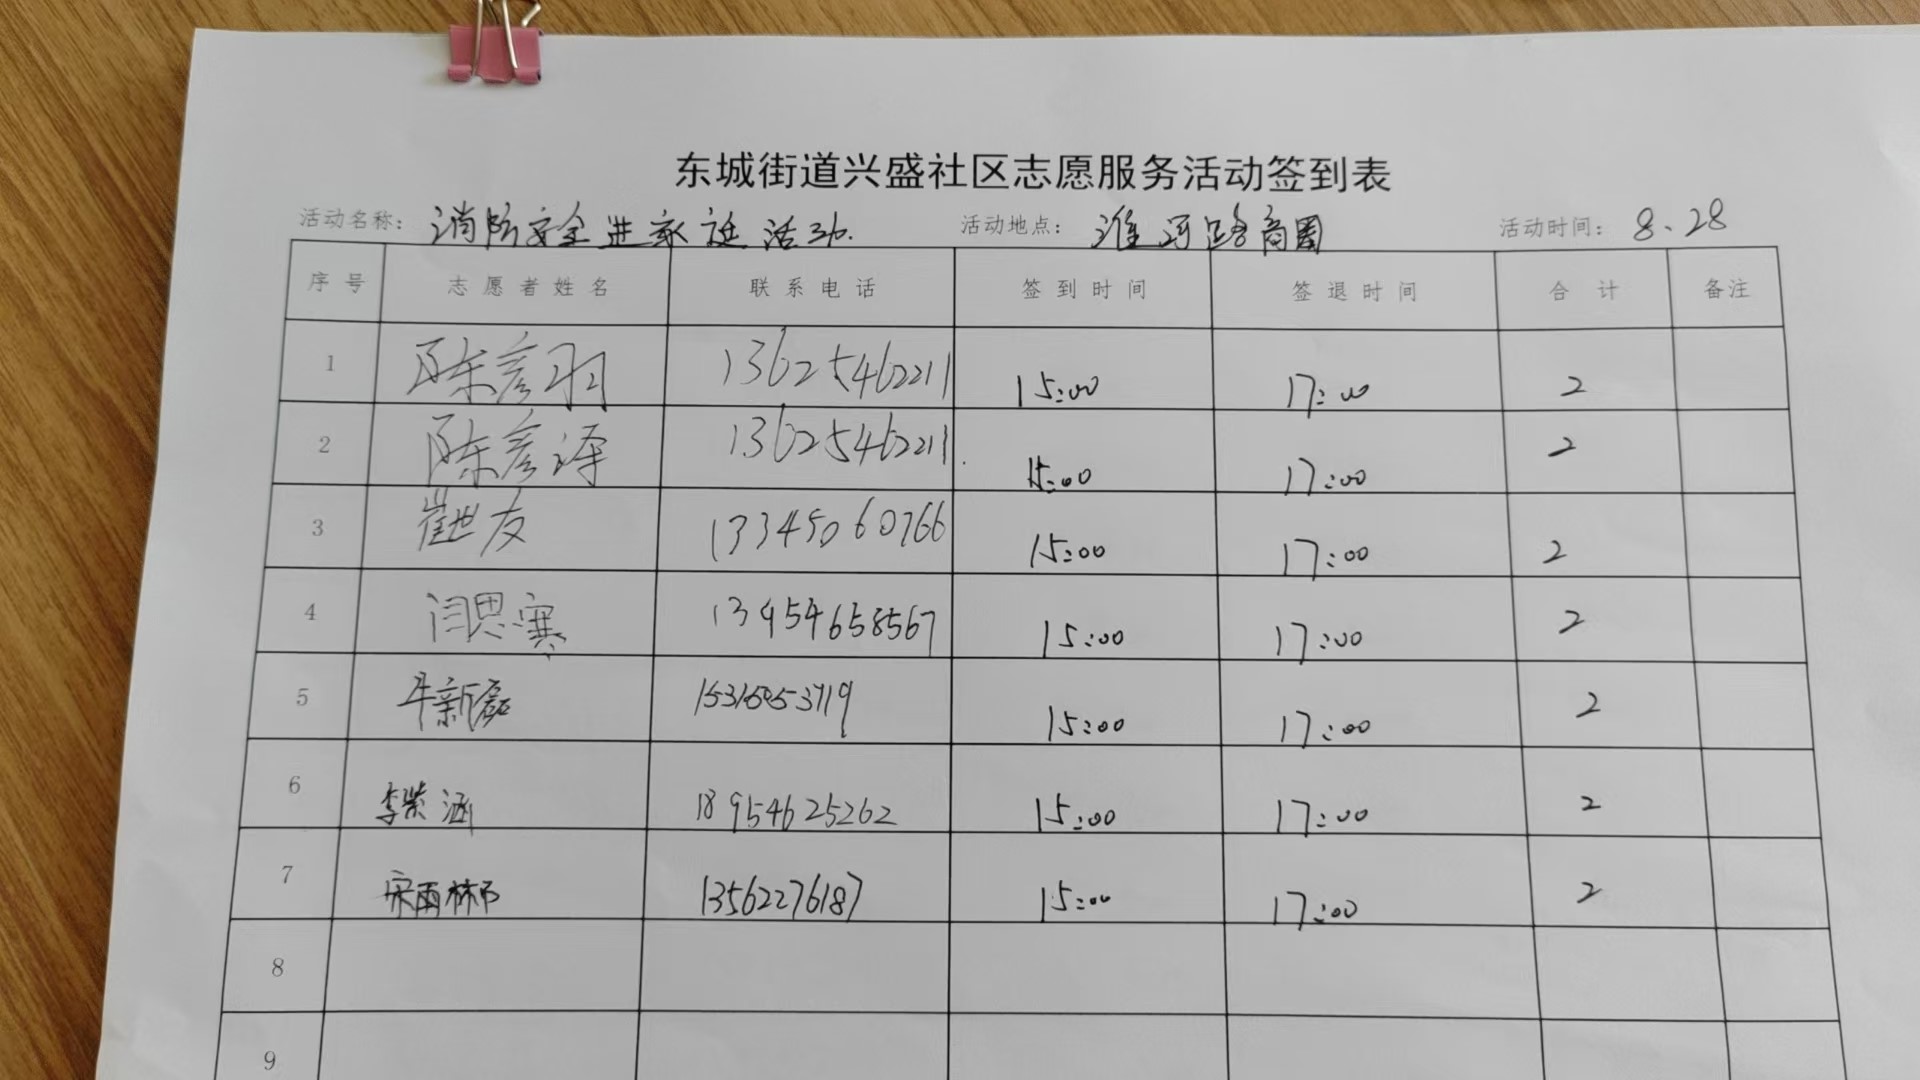 东城街道兴盛社区志愿服务活动签到表
活动名称：消防安全进家庭活动. 活动地点：淮河路商圈 活动时间：8、28
序号 志愿者姓名 联系电话 签到时间 签退时间 合计 备注
1 陈彦羽 13625462211 15:00 17:00 2
2 陈彦泽 13625462211 15:00 17:00 2
3 崔世友 13345060766 15:00 17:00 2
4 闫思寒 13954658567 15:00 17:00 2
5 牛新磊 15:00 17:00 2
6 李紫涵 18954625262 15:00 17:00 2
7 宋雨 13562276187 15:00 17:00 2
8
9